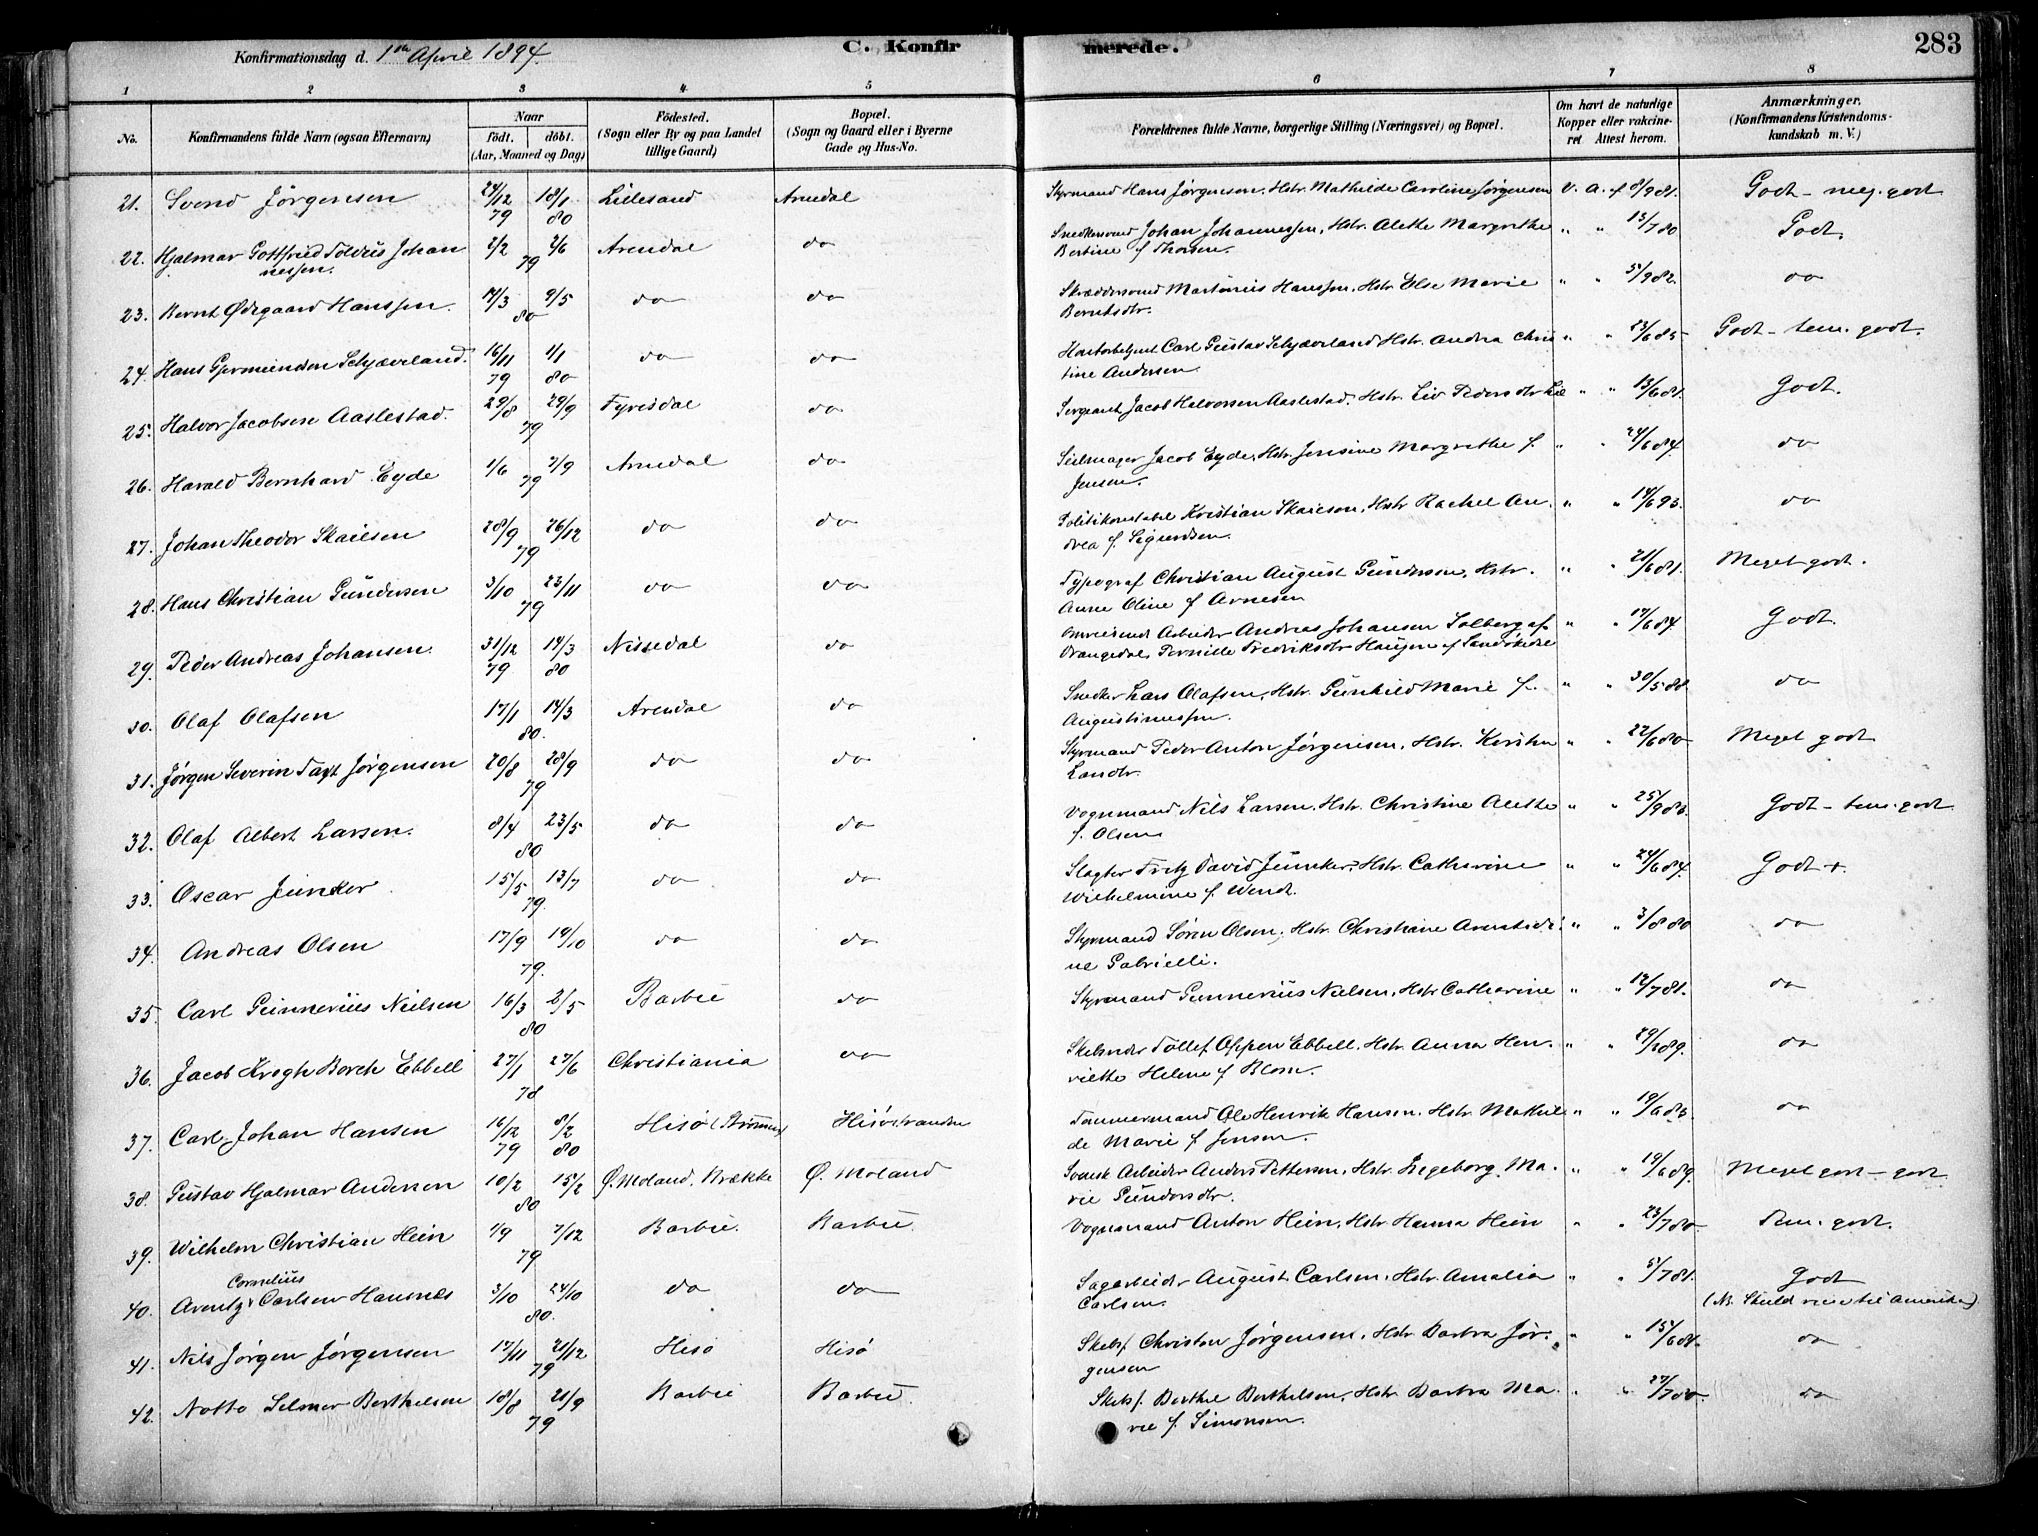 Konfirmationsdag d. 1ste April 1894.
C. Konfirmerede.
283
1 2 3 4 5 6 7 8
No.
Konfirmandens fulde Navn (ogsaa Efternavn)
Naar
födt. döbt.
(Aar, Maaned og Dag)
Födested.
(Sogn eller By og paa Landet
tillige Gaard)
Bopæl.
(Sogn og Gaard eller i Byerne
Gade og Hus-No.
Forældrenes fulde Navne, borgerlige Stilling (Næringsvei) og Bopæl.
Om havt de naturlige
Kopper eller vakcine-
ret Attest herom.
Anmærkninger.
(Konfirmandens Kristendoms-
kundskab m. V.)
21. Svend Jørgensen 24/12 79 18/1 80 Lillesand Arendal Styrmand Hans Jørgensen, Hstr. Mathilde Caroline Jørgensen V. A. f 8/9 81. Godt - meg. godt
22. Hjalmar Gottfried Toldus Johan 2/2 2/6 79 Arendal do Johan Johannessen, Hstr. Alethe Margrethe " " 13/7 80 Godt.
nessen. Bertine f. Thorsen.
23. Bernt Ødegaard Hanssen. 14/3 9/5 80 do do Skræddersvend Martinius Hanssen, Hstr. Else Marie " " 5/9 82. do
Berntsdtr.
24. Hans Schjæverland. 16/11 79 1/1 80 do do Carl Gustav Schjæverland Hstr. Andrea Chris " " 23/6 85 Godt - tem. godt.
tine Andersen
25. Halvor Jacobsen Aaslestad. 29/8 29/9 79 Fyresdal do Sergeant Jacob Halvorssen Aaslestad. Hstr. Liv Pedersdtr " " 13/6 81. Godt.
26. Harald Bernhard Eyde 1/6 7/9 79 Arendal do Seilmager Jacob Eyde, Hstr. Jensine Margrethe f. " " 24/6 84. do
Jensen.
27. Johan Theodor Skailsen 28/9 26/12 79 do do Politikonstabel Kristian Skaielsen, Hstr Rachel An " " 14/6 93. do
drea f. Sigurdsen.
28. Hans Christian Gundersen 3/10 23/11 79 do do Typograf Christian August Gundersen, Hstr. " " 21/6 81. Meget godt.
Anne Oline f Arnesen
29. Peder Andreas Johansen. 31/12 79 14/3 80 Nissedal do Omreisende Arbeider Andreas Johansen Solberg af " " 17/6 84. Godt.
Drangedal, Pernille Fredriksdtr Haugen af Sandøkedal
30. Olaf Olafsen 17/1 14/3 80. Arendal do Snedker Lars Olafsen, Hstr. Gunhild Marie f. " " 30/5 88. do
Augustinussen.
31. Jørgen Severin Taxt Jørgensen 20/8 28/9 79 do do Styrmand Peder Anton Jørgensen, Hstr. Kirsten " " 22/6 80 Meget godt
Larsdtr.
32. Olaf Albert Larsen. 8/4 23/5 80 do do Vognmand Nils Larsen, Hstr. Christine Alethe " " 25/9 83. Godt - tem. godt
f. Olsen
33. Oscar Junker 15/5 13/7 79. do do Slagter Fritz David Junker, Hstr. Catherine " " 24/6 84. Godt +.
Wilhelmine f. Wendt.
34. Andreas Olsen 17/9 14/10 79. do do Styrmand Søren Olsen, Hstr. Christiane " " 3/8 80 do
ne Gabrielli.
35. Carl Gunnerius Nielsen 16/3 2/5 80 Barbu do Styrmand Gunnerius Nielsen, Hstr Catharine " " 12/7 81. do
36. Jacob Krogh Borch Ebbell 27/1 27/6 78 Christiania do Tollef Oppen Ebbell. Hstr. Anna Hen- " " do
riette Helene f. Blom.
37. Carl Johan Hansen 16/12 79 8/2 80 Hisö (Strømmen) Hisöstranden Tømmermand Ole Henrik Hansen. Hstr. Mathil " " 19/6 83. do
de Marie f Jensen.
38. Gustav Hjalmar Andersen 10/2 15/2 80 Ø. Moland. Brække Ø. Moland Svensk Arbeider Anders Pettersen, Hstr. Ingeborg Ma- " " 19/6 89. Meget godt - godt
rie Gundersdtr.
39. Wilhelm Christian Hein 1/9 7/12 79 Barbu. Barbu. Vognmand Anton Hein, Hstr. Hanna Hein " " 23/7 80 Tem. godt.
Cornelius
40. Arentz Carlsen Hausnes 3/10 24/10 80. do do Sagarbeider August Carlsen, Hstr. Amalia " " 5/7 81. Godt
Carlsen. (NB. Skuld reise til Amerika)
41. Nils Jørgen Jørgensen 17/11 21/12 79 Hisö Hisö Skibsf. Christen Jørgensen, Hstr. Barbra Jør- " " 15/6 81. do
gensen
42. Notto Selmer Berthelsen 18/8 21/9 79 Barbu Barbu. Skibsf. Berthel Berthelsen, Hstr. Barbra Ma " " 27/7 80. do
rie f. Simonsen.